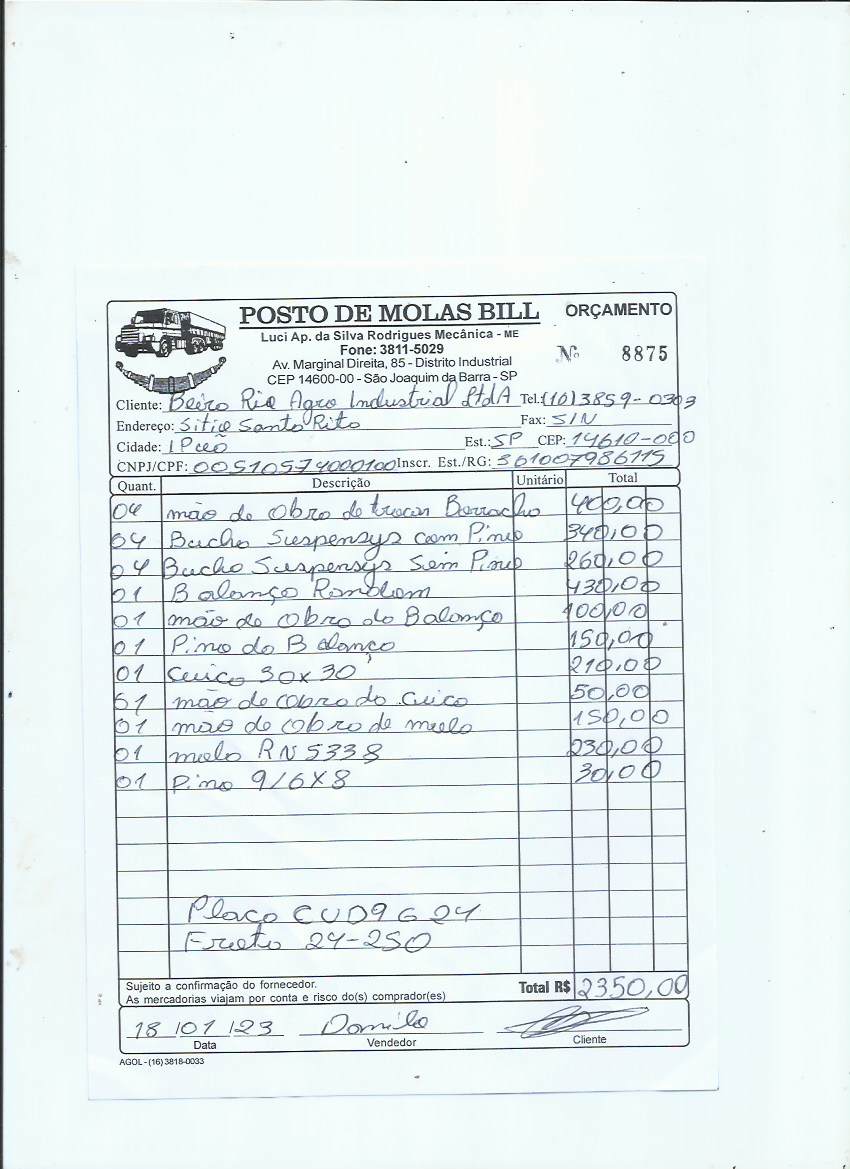 POSTO DE MOLAS BILL ORÇAMENTO
Luci Ap. da Silva Rodrigues Mecânica - ME
Fone: 3811-5029
Nº 8875
Av. Marginal Direita, 85 - Distrito Industrial
CEP 14600-00 - São Joaquim da Barra - SP
Cliente: Beiro Rio Agro Industrial LtdA Tel.: (16) 3859-0303
Endereço: Sitio Santo Rito Fax: S/N
Cidade: IPuã Est.: SP CEP: 14610-000
CNPJ/CPF: 00510574000100 Inscr. Est./RG: 361007986115
Quant. Descrição Unitário Total
04 mão de obro de trocar Borracho 400,00
04 Bucho Suspensys com Pino 340,00
04 Bucho Suspensys Sem Pino 260,00
01 Balanço Random 430,00
01 mão de obro do Balanço 100,00
01 Pino do Balanço 150,00
01 Cuíco 30x30 210,00
01 mão de obro do Cuíco 50,00
01 mão de obro de molo 150,00
01 molo RN5338 230,00
01 Pino 9/6x8 30,00
Placo CUD9G24
24-250
Sujeito a confirmação do fornecedor.
As mercadorias viajam por conta e risco do(s) comprador(es)
Total R$ 2350,00
18/01/23 Danilo
Data Vendedor Cliente
AGOL - (16) 3818-0033